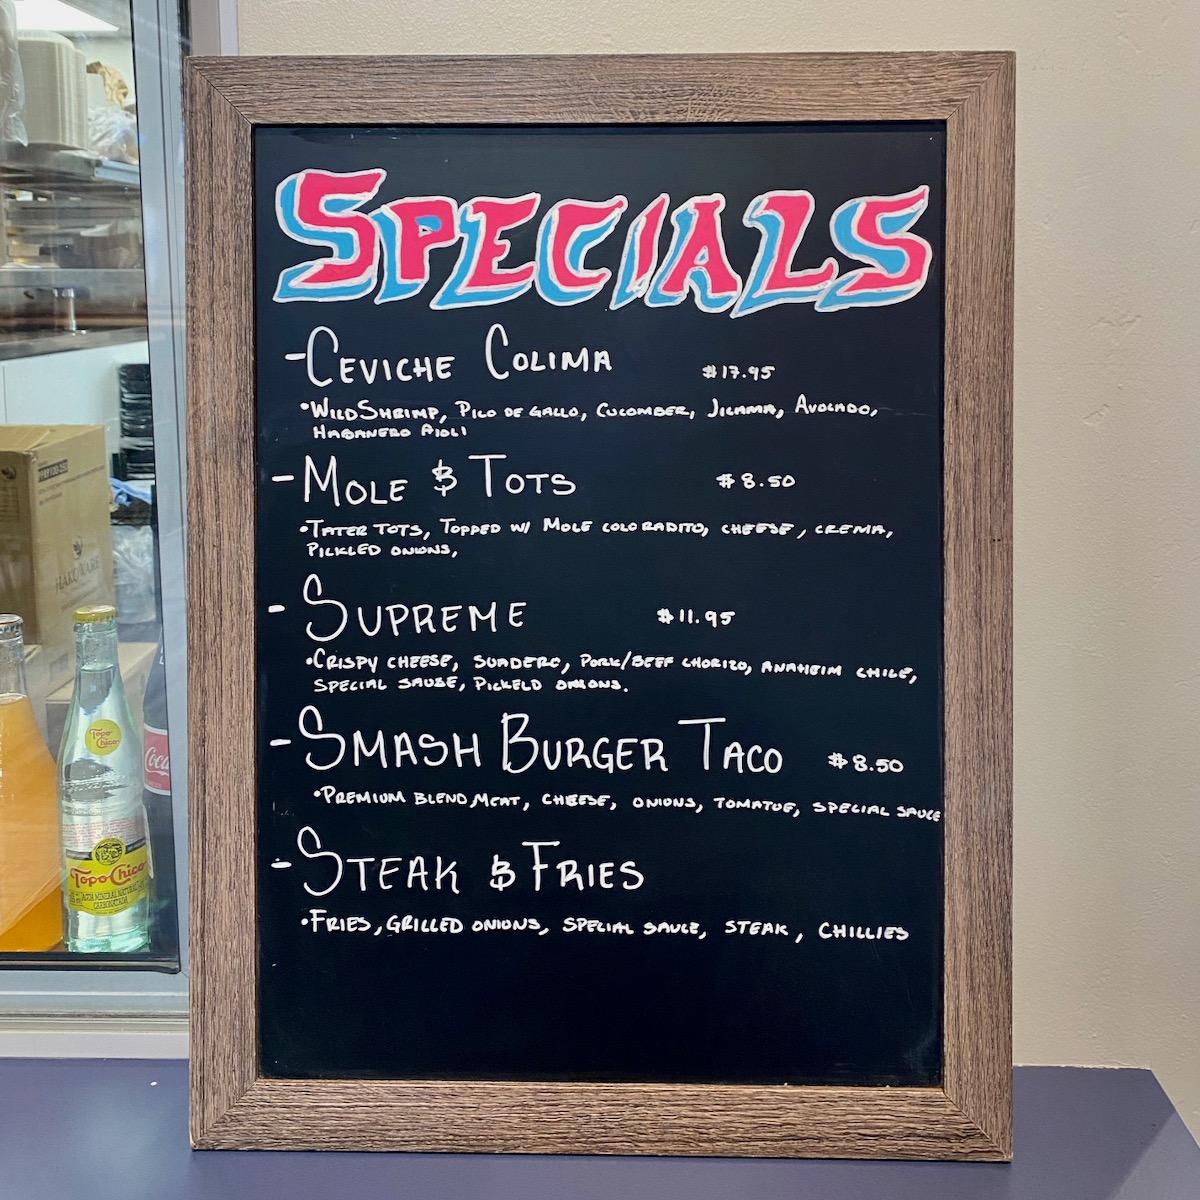 SPECIALS
-CEVICHE COLIMA $17.95
•WILD SHRIMP, PICO DE GALLO, CUCOMBER, JICAMA, AVOCADO,
HABANERO AIOLI
-MOLE & TOTS $8.50
•TATER TOTS, TOPPED W/ MOLE COLORADITO, CHEESE, CREMA,
PICKLED ONIONS,
-SUPREME $11.95
•CRISPY CHEESE, SUADERO, PORK/BEEF CHORIZO, ANAHEIM CHILE,
SPECIAL SAUSE, PICKELD ONIONS.
-SMASH BURGER TACO $8.50
•PREMIUM BLEND MEAT, CHEESE, ONIONS, TOMATOE, SPECIAL SAUCE
-STEAK & FRIES
•FRIES, GRILLED ONIONS, SPECIAL SAUCE, STEAK, CHILLIES
HAKOWARE
Topo
Chico
Coca
Topo Chico
AGUA MINERAL NATURAL
CARBONATADA